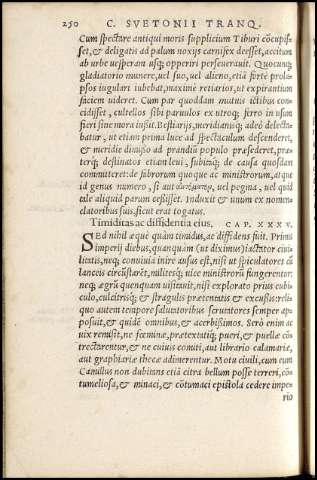 250 C. SVETONII TRANQ.
Cum spectare antiqui moris supplicium Tiburi cōcupis
set, & deligatis ad palum noxijs carnifex deesset, accitum
ab urbe uesperam usq; opperiri perseuerauit. Quocunq;
gladiatorio munere, uel suo, uel alieno, etiā fortè prola-
psos iugulari iubebat, maximè retiarios, ut expirantium
faciem uideret. Cum par quoddam mutuis ictibus con-
cidisset, cultellos sibi paruulos ex utroq; ferro in usum
fieri sine mora iussit. Bestiarijs, meridianisq; adeò delecta-
batur, ut etiam prima luce ad spectaculum descenderet,
& meridie dimisso ad prandiū populo præsederet, præ-
terq; destinatos etiam leui, subitaq; de causa quosdam
committeret: de fabrorum quoque ac ministrorum, atque
id genus numero, si aut αυτόματον, uel pegma, uel quid
tale aliquid parum cessisset. Induxit & unum ex nomen-
clatoribus suis, sicut erat togatus.
Timiditas ac diffidentia eius, CAP. XXXV.
Sed nihil æquè quàm timidus, ac diffidens fuit. Primis
imperij diebus, quanquam (ut diximus) iactator ciui-
litatis, neq; conuiuia inire ausus est, nisi ut spiculatores cū
lanceis circūstarēt, militesq; uice ministrorū fungerentur:
neq; ægrū quenquam uisitauit, nisi explorato prius cubi-
culo, culcitrisq; & stragulis prætentatis & excussis: reli-
quo autem tempore salutatoribus scrutatores semper ap-
posuit, & quidē omnibus, & acerbißimos. Serò enim ac
uix remisit, ne fœminæ, prætextatiq; pueri, & puellæ cō
trectarentur, & ne cuiuis comiti, aut librario calamariæ,
aut graphiariæ thecæ adimerentur. Motu ciuili, cum eum
Camillus non dubitans etiā citra bellum posse terreri, cōn
tumeliosa, & minaci, & cōtumaci epistola cedere impe-
rio